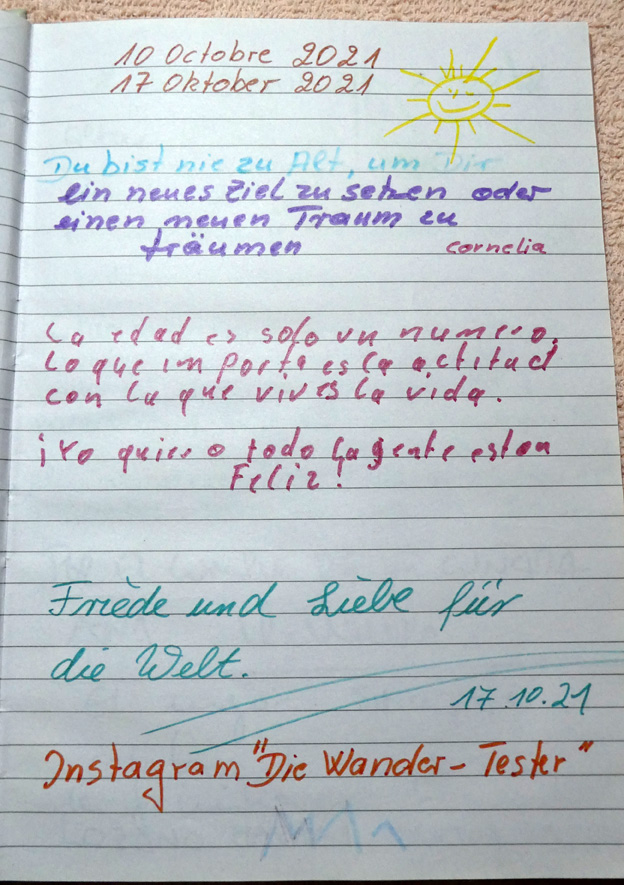 10 Octobre 2021
17 Oktober 2021
Du bist nie zu Alt, um Dir
ein neues Ziel zu setzen oder
einen neuen Traum zu
träumen
cornelia
La edad es solo un numero.
Lo que importa es la actitud
con la que vives la vida.
¡Yo quiero todo la gente estan
Feliz!
Friede und Liebe für
die Welt.
17.10.21
Instagram "Die Wander-Tester"